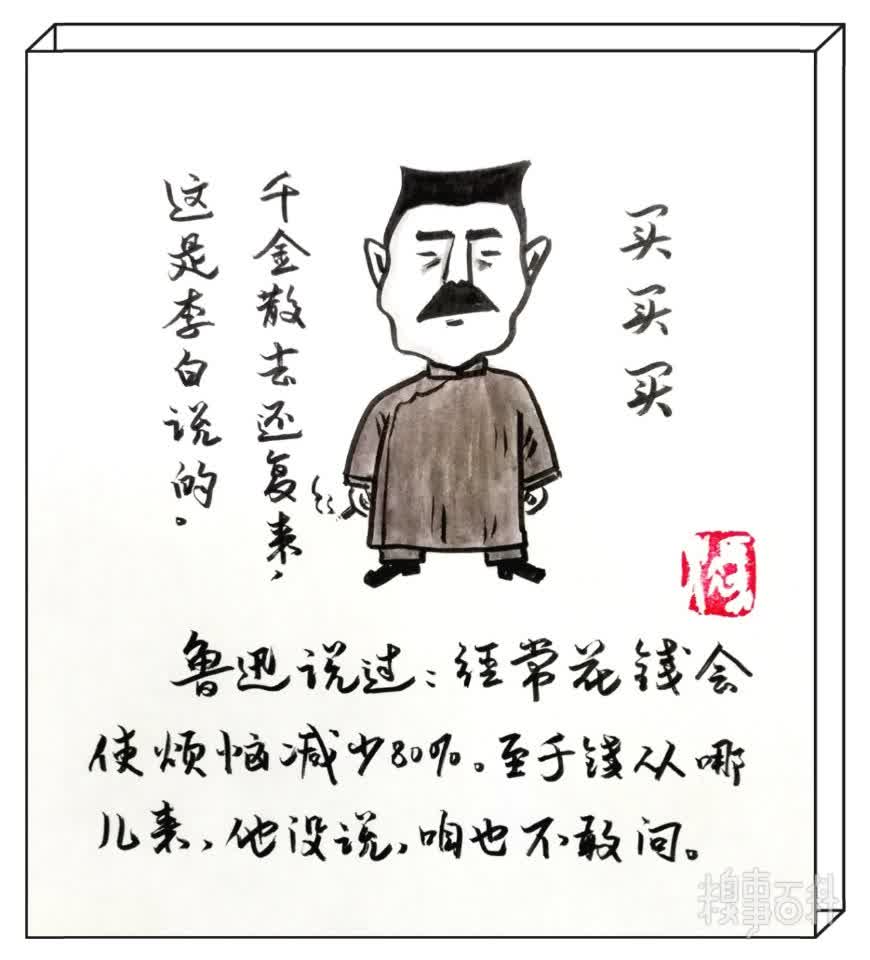 买买买
千金散去还复来，
这是李白说的。
鲁迅说过：经常花钱会
使烦恼减少80%。至于钱从哪
儿来，他没说，咱也不敢问。
糗事百科